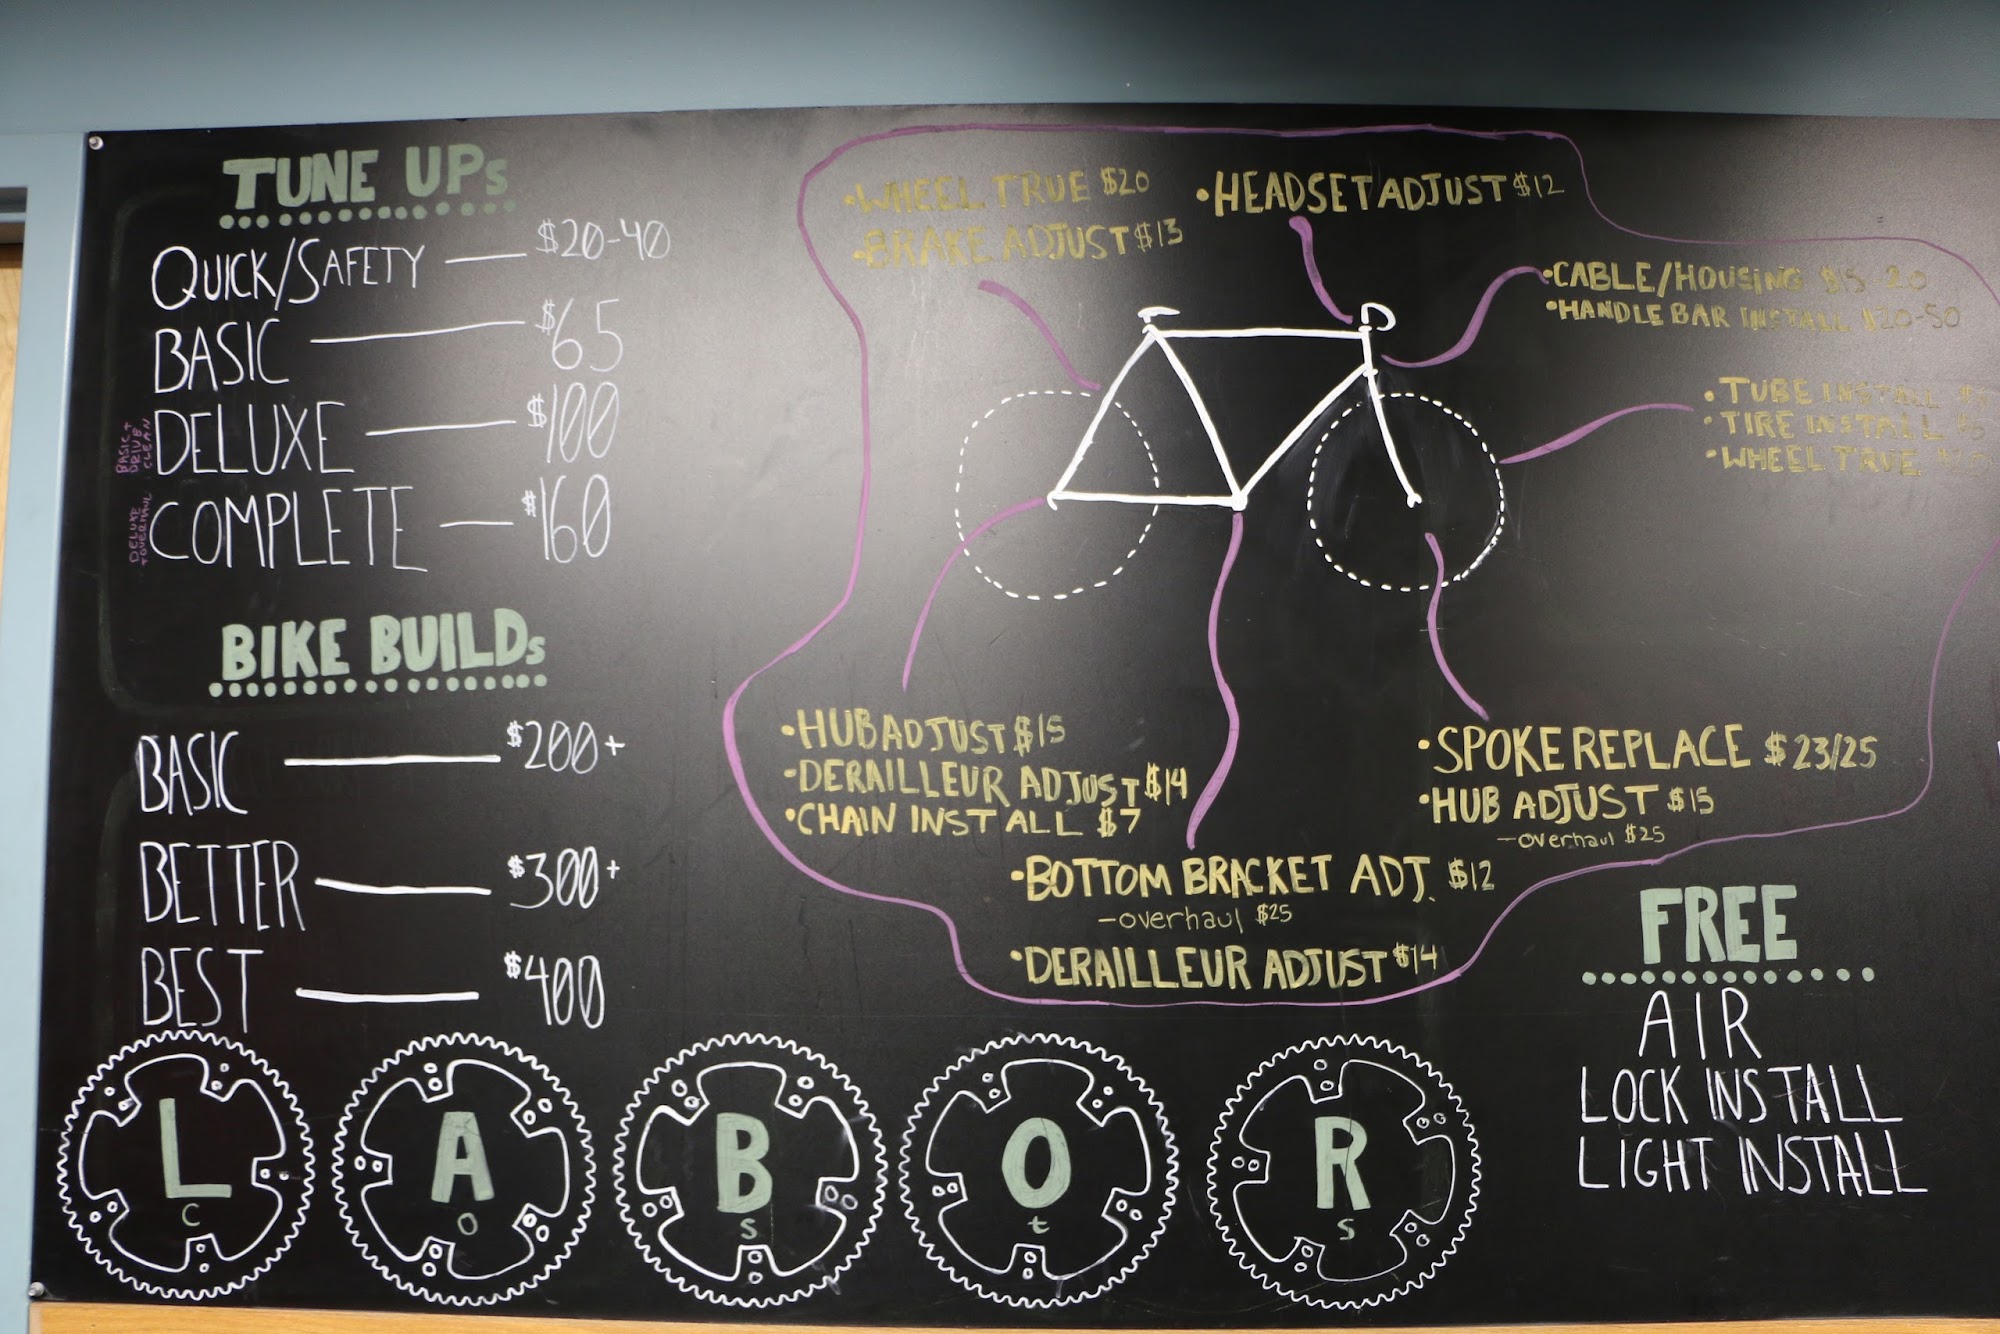 TUNE UPs
QUICK/SAFETY — $20-40
BASIC — $65
DELUXE — $100
BASIC +
DRIVE
CLEAN
COMPLETE — $160
DELUXE
+ OVERHAUL
BIKE BUILDs
BASIC — $200+
BETTER — $300+
BEST — $400
•WHEEL TRUE $20
•BRAKE ADJUST $13
•HEADSET ADJUST $12
•CABLE/HOUSING $15-20
•HANDLE BAR INSTALL $20-50
•TUBE INSTALL
•TIRE INSTALL
•WHEEL TRUE
•HUB ADJUST $15
•DERAILLEUR ADJUST $14
•CHAIN INSTALL $7
•SPOKE REPLACE $23/25
•HUB ADJUST $15
—overhaul $25
•BOTTOM BRACKET ADJ. $12
—overhaul $25
•DERAILLEUR ADJUST $14
FREE
AIR
LOCK INSTALL
LIGHT INSTALL
L A B O R
C O S t S